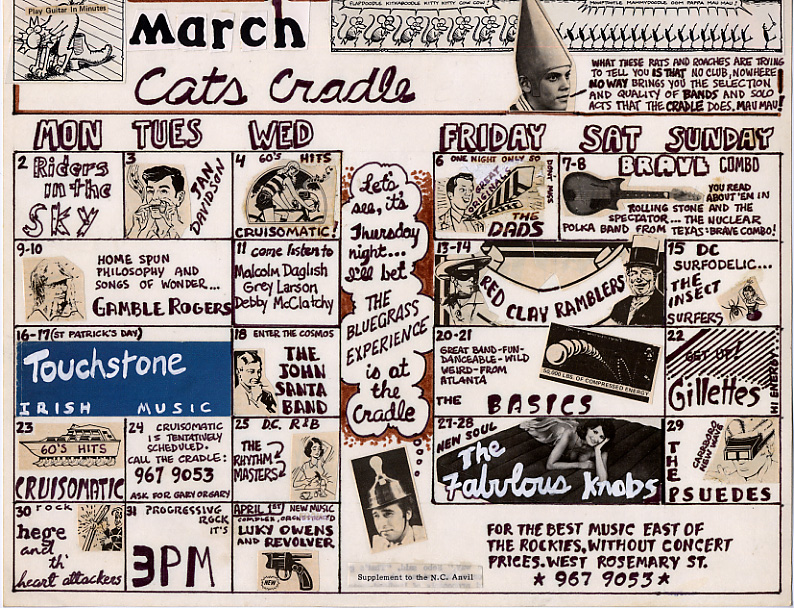 Play Guitar In Minutes
March
FLAPDOODLE KITKABOODLE KITTY KITTY COW COW!
MOMPTIMTLE MAMMYDOODLE OOM PAPPA MAU MAU!
Cats Cradle
WHAT THESE RATS AND ROACHES ARE TRYING
TO TELL YOU IS THAT NO CLUB, NOWHERE
NO WAY BRINGS YOU THE SELECTION
AND QUALITY OF BANDS AND SOLO
ACTS THAT THE CRADLE DOES. MAU MAU!
MON TUES WED FRIDAY SAT SUNDAY
2 Riders
in the
SKY
3
JAN
DAVIDSON
4 60'S HITS
CRUISOMATIC!
6 ONE NIGHT ONLY SO
DON'T MISS
GREAT
ORIGINALS
THE
DADS
7-8
BRAVE COMBO
YOU READ
ABOUT 'EM IN
ROLLING STONE AND THE
SPECTATOR... THE NUCLEAR
POLKA BAND FROM TEXAS: BRAVE COMBO!
9-10
HOME SPUN
PHILOSOPHY AND
SONGS OF WONDER...
GAMBLE ROGERS
11 come listen to
Malcolm Daglish
Grey Larson
Debby McClatchy
Let's
see, it's
Thursday
night...
I'll bet
THE
BLUEGRASS
EXPERIENCE
is at
the
Cradle
13-14
RED CLAY RAMBLERS
15 DC
SURFODELIC...
THE
INSECT
SURFERS
16-17 (ST PATRICK'S DAY)
Touchstone
IRISH MUSIC
18 ENTER THE COSMOS
THE
JOHN
SANTA
BAND
20-21
GREAT BAND-FUN-
DANCEABLE-WILD
WEIRD-FROM
ATLANTA
50,000 LBS. OF COMPRESSED ENERGY
THE BASICS
22
GET UP!
Gillettes
HI ENERGY...
23
60'S HITS
CRUISOMATIC
24 CRUISOMATIC
IS TENTATIVELY
SCHEDULED.
CALL THE CRADLE:
967 9053
ASK FOR GARY OR GARY
25 D.C. R&B
THE
RHYTHM
MASTERS
27-28
NEW SOUL
The
Fabulous Knobs
29
CARRBORO
NEW WAVE
THE
PSUEDES
30 rock
hege
and
th'
heart attackers
31 PROGRESSIVE
ROCK
IT'S
3PM
APRIL 1ST NEW MUSIC
LUKY OWENS
AND REVOLVER
NEW
Supplement to the N.C. Anvil
FOR THE BEST MUSIC EAST OF
THE ROCKIES, WITHOUT CONCERT
PRICES. WEST ROSEMARY ST.
★ 967 9053 ★